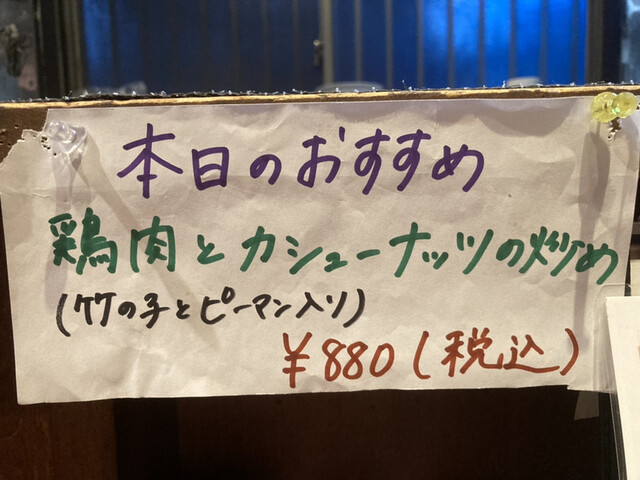 本日のおすすめ
鶏肉とカシューナッツの炒め
(竹の子とピーマン入り)
¥880(税込)